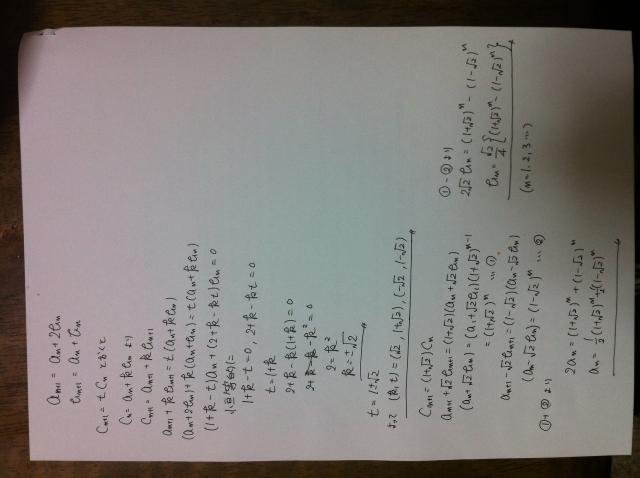 aₙ₊₁ = aₙ + 2bₙ
bₙ₊₁ = aₙ + bₙ
Cₙ₊₁ = tCₙ とおくと
Cₙ = aₙ + kbₙ より
Cₙ₊₁ = aₙ₊₁ + kbₙ₊₁
aₙ₊₁ + kbₙ₊₁ = t(aₙ + kbₙ)
(aₙ + 2bₙ) + k(aₙ + bₙ) = t(aₙ + kbₙ)
(1+k-t)aₙ + (2+k-kt)bₙ = 0
恒等的に
1+k-t=0, 2+k-kt=0
t=1+k
2+k-k(1+k)=0
2+k-k-k²=0
2=k²
k=±√2
t=1±√2
よって (k,t)=(√2,1+√2),(-√2,1-√2)
Cₙ₊₁=(1+√2)Cₙ
aₙ₊₁+√2bₙ₊₁=(1+√2)(aₙ+√2bₙ)
(aₙ+√2bₙ)=(a₁+√2b₁)(1+√2)ⁿ⁻¹
=(1+√2)ⁿ … ①
aₙ₊₁-√2bₙ₊₁=(1-√2)(aₙ-√2bₙ)
(aₙ-√2bₙ)=(1-√2)ⁿ … ②
①+②より
2aₙ=(1+√2)ⁿ+(1-√2)ⁿ
aₙ=½(1+√2)ⁿ+½(1-√2)ⁿ
①-②より
2√2bₙ=(1+√2)ⁿ-(1-√2)ⁿ
bₙ=√2/4{(1+√2)ⁿ-(1-√2)ⁿ}
(n=1.2,3…)